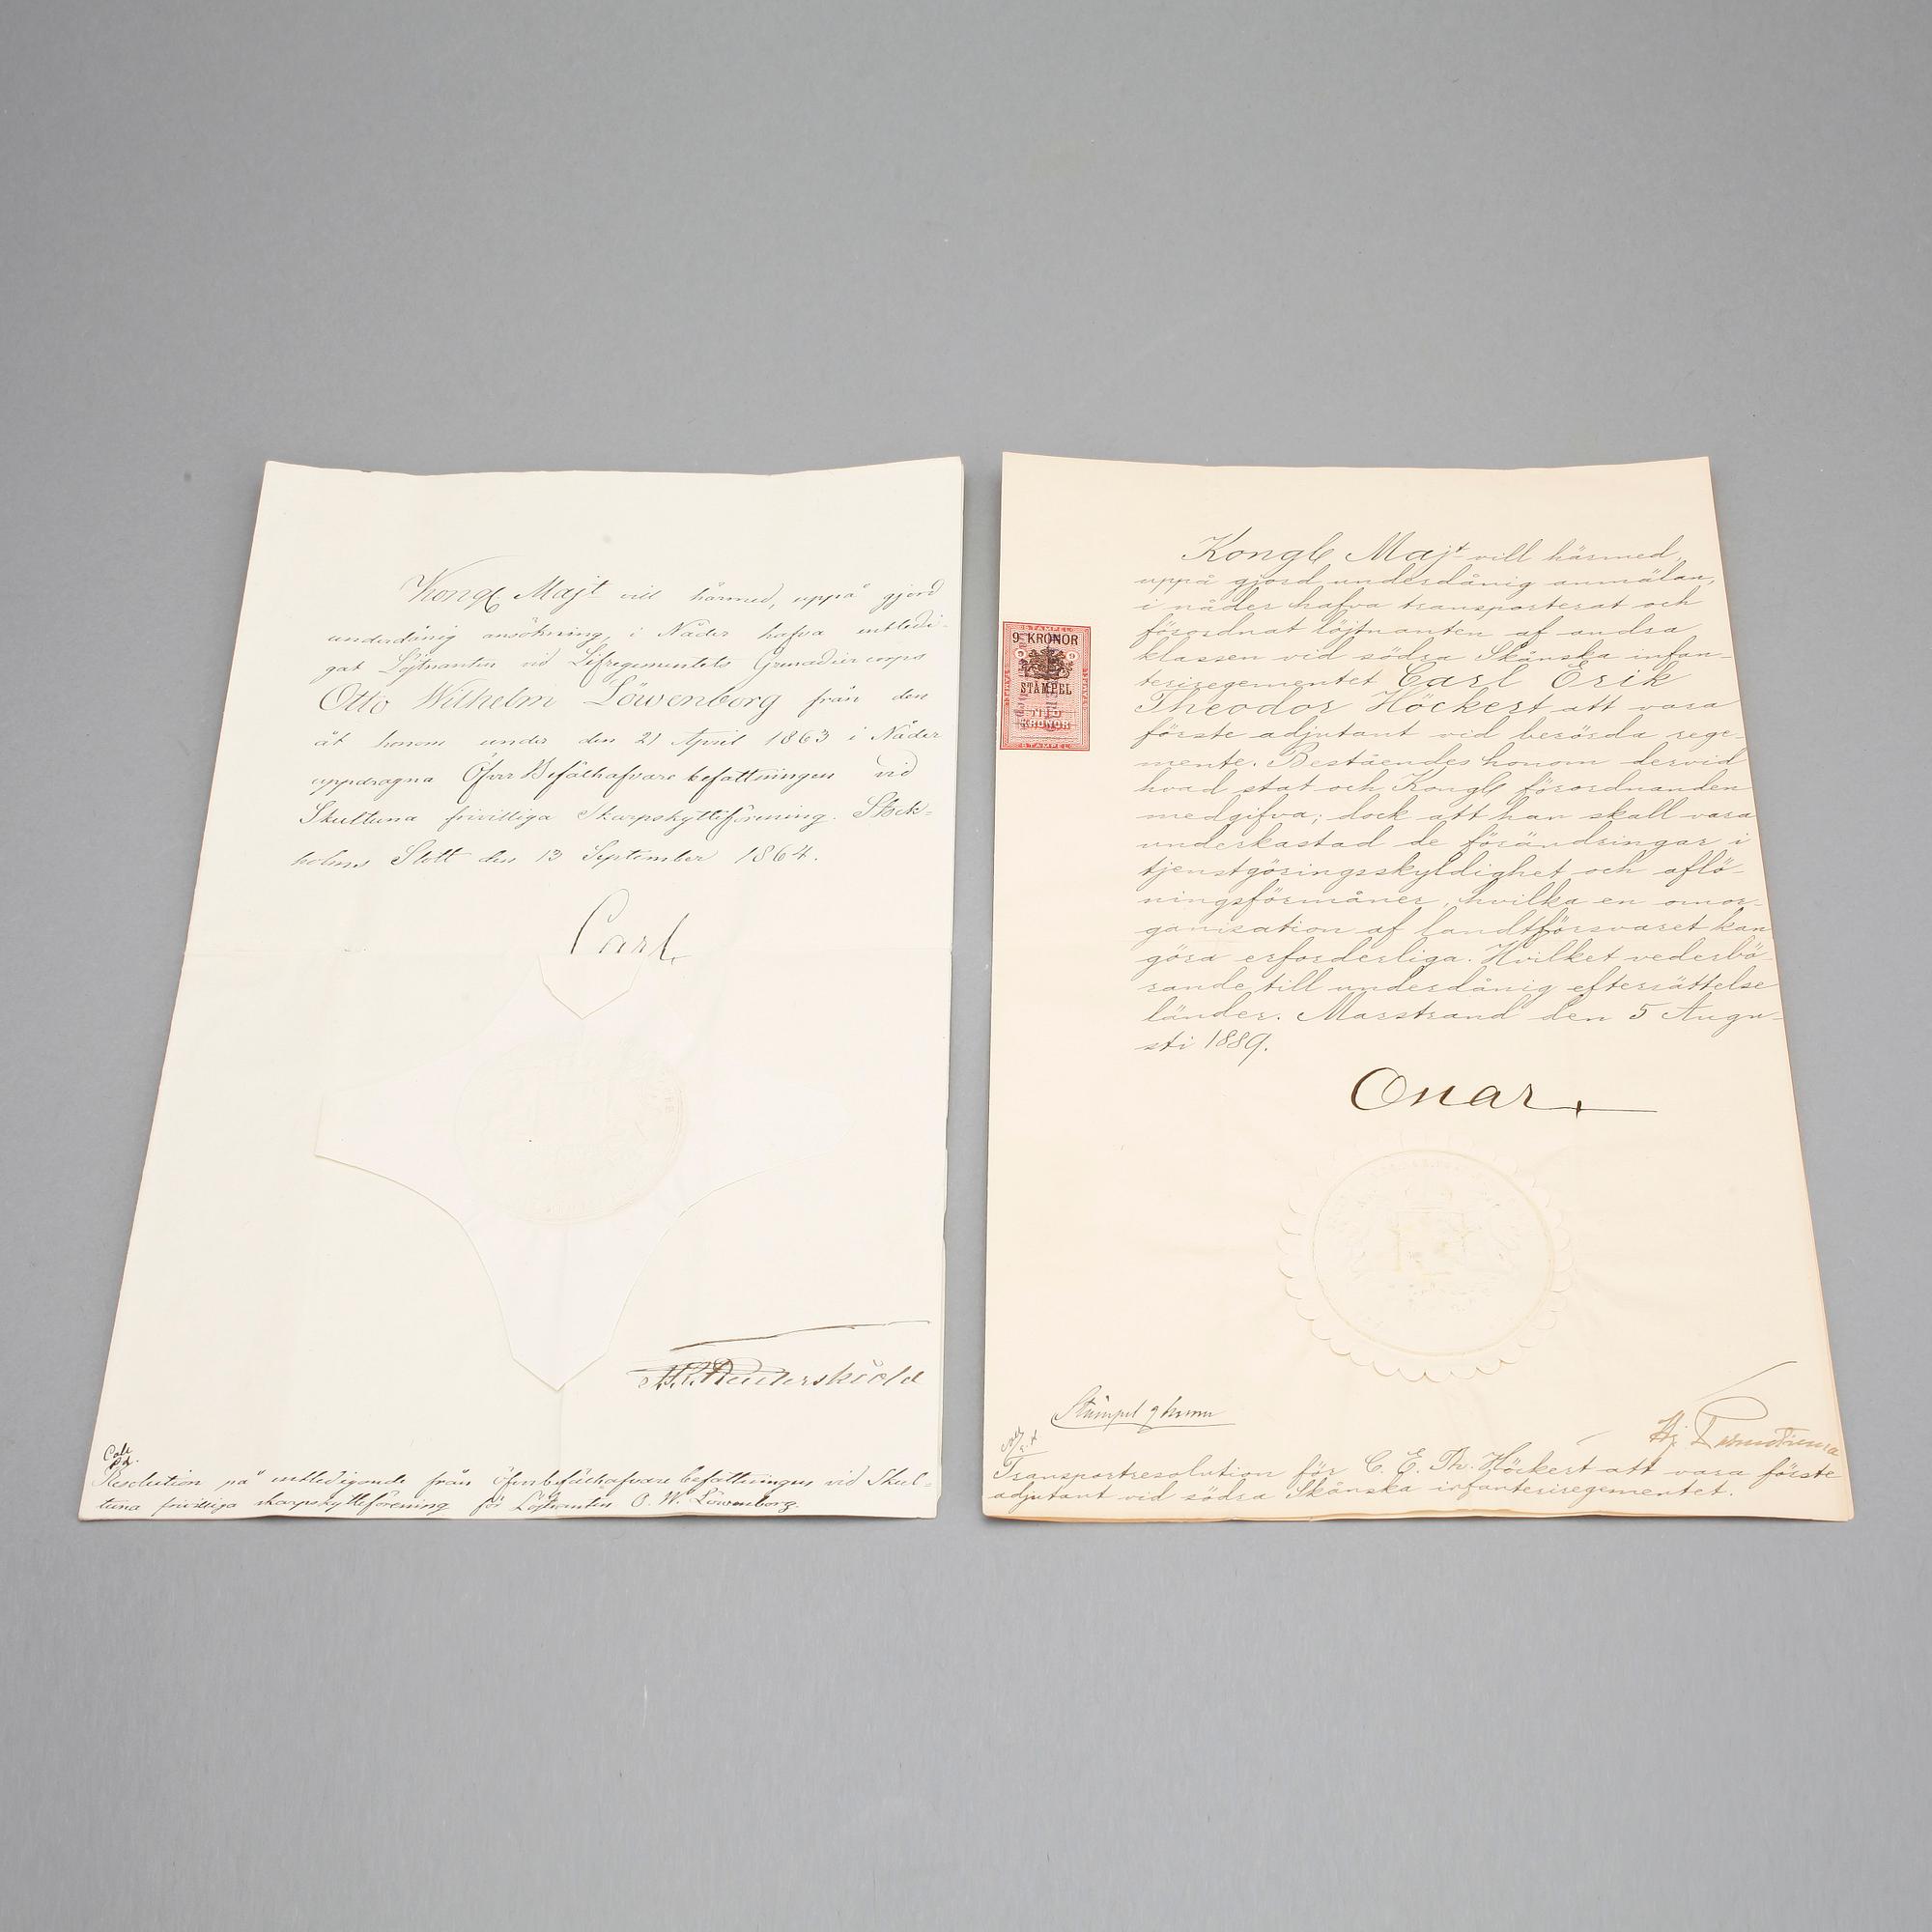 Kongl Majt vill härmed, uppå gjord
underdånig ansökning, i Nåder hafva entledi-
gat Löjtnanten vid Lifregementets Grenadiercorps
Otto Wilhelm Löwenborg från den
åt honom under den 21 April 1863 i Nåder
uppdragna Öfver Befälhafvare befattningen vid
Skultuna frivilliga Skarpskytteförening. Stock-
holms Slott den 13 September 1864.
Carl
Reuterskiöld
Resolution på entledigande från Öfverbefälhafvare befattningen vid Skul-
tuna frivilliga skarpskytteförening för Löjtnanten O. W. Löwenborg
STÄMPEL
9 KRONOR
9 9
STÄMPEL
NIO
KRONOR
STÄMPEL
Kongl Majt vill härmed,
uppå gjord underdånig anmälan,
i nåder hafva transporterat och
förordnat löjtnanten af andra
klassen vid södra Skånska infan-
teriregementet Carl Erik
Theodor Höckert att vara
förste adjutant vid berörda rege-
mente. Beståendes honom dervid
hvad stat och Kongl förordnanden
medgifva; dock att han skall vara
underkastad de förändringar i
tjenstgöringsskyldighet och aflö-
ningsförmåner, hvilka en omor-
ganisation af landtförsvaret kan
göra erforderliga. Hvilket vederbö-
rande till underdånig efterrättelse
länder. Marstrand den 5 Augu-
sti 1889.
Oscar
Stämpel 9 kronor
Transportresolution för C. E. Th. Höckert att vara förste
adjutant vid södra Skånska infanteriregementet.